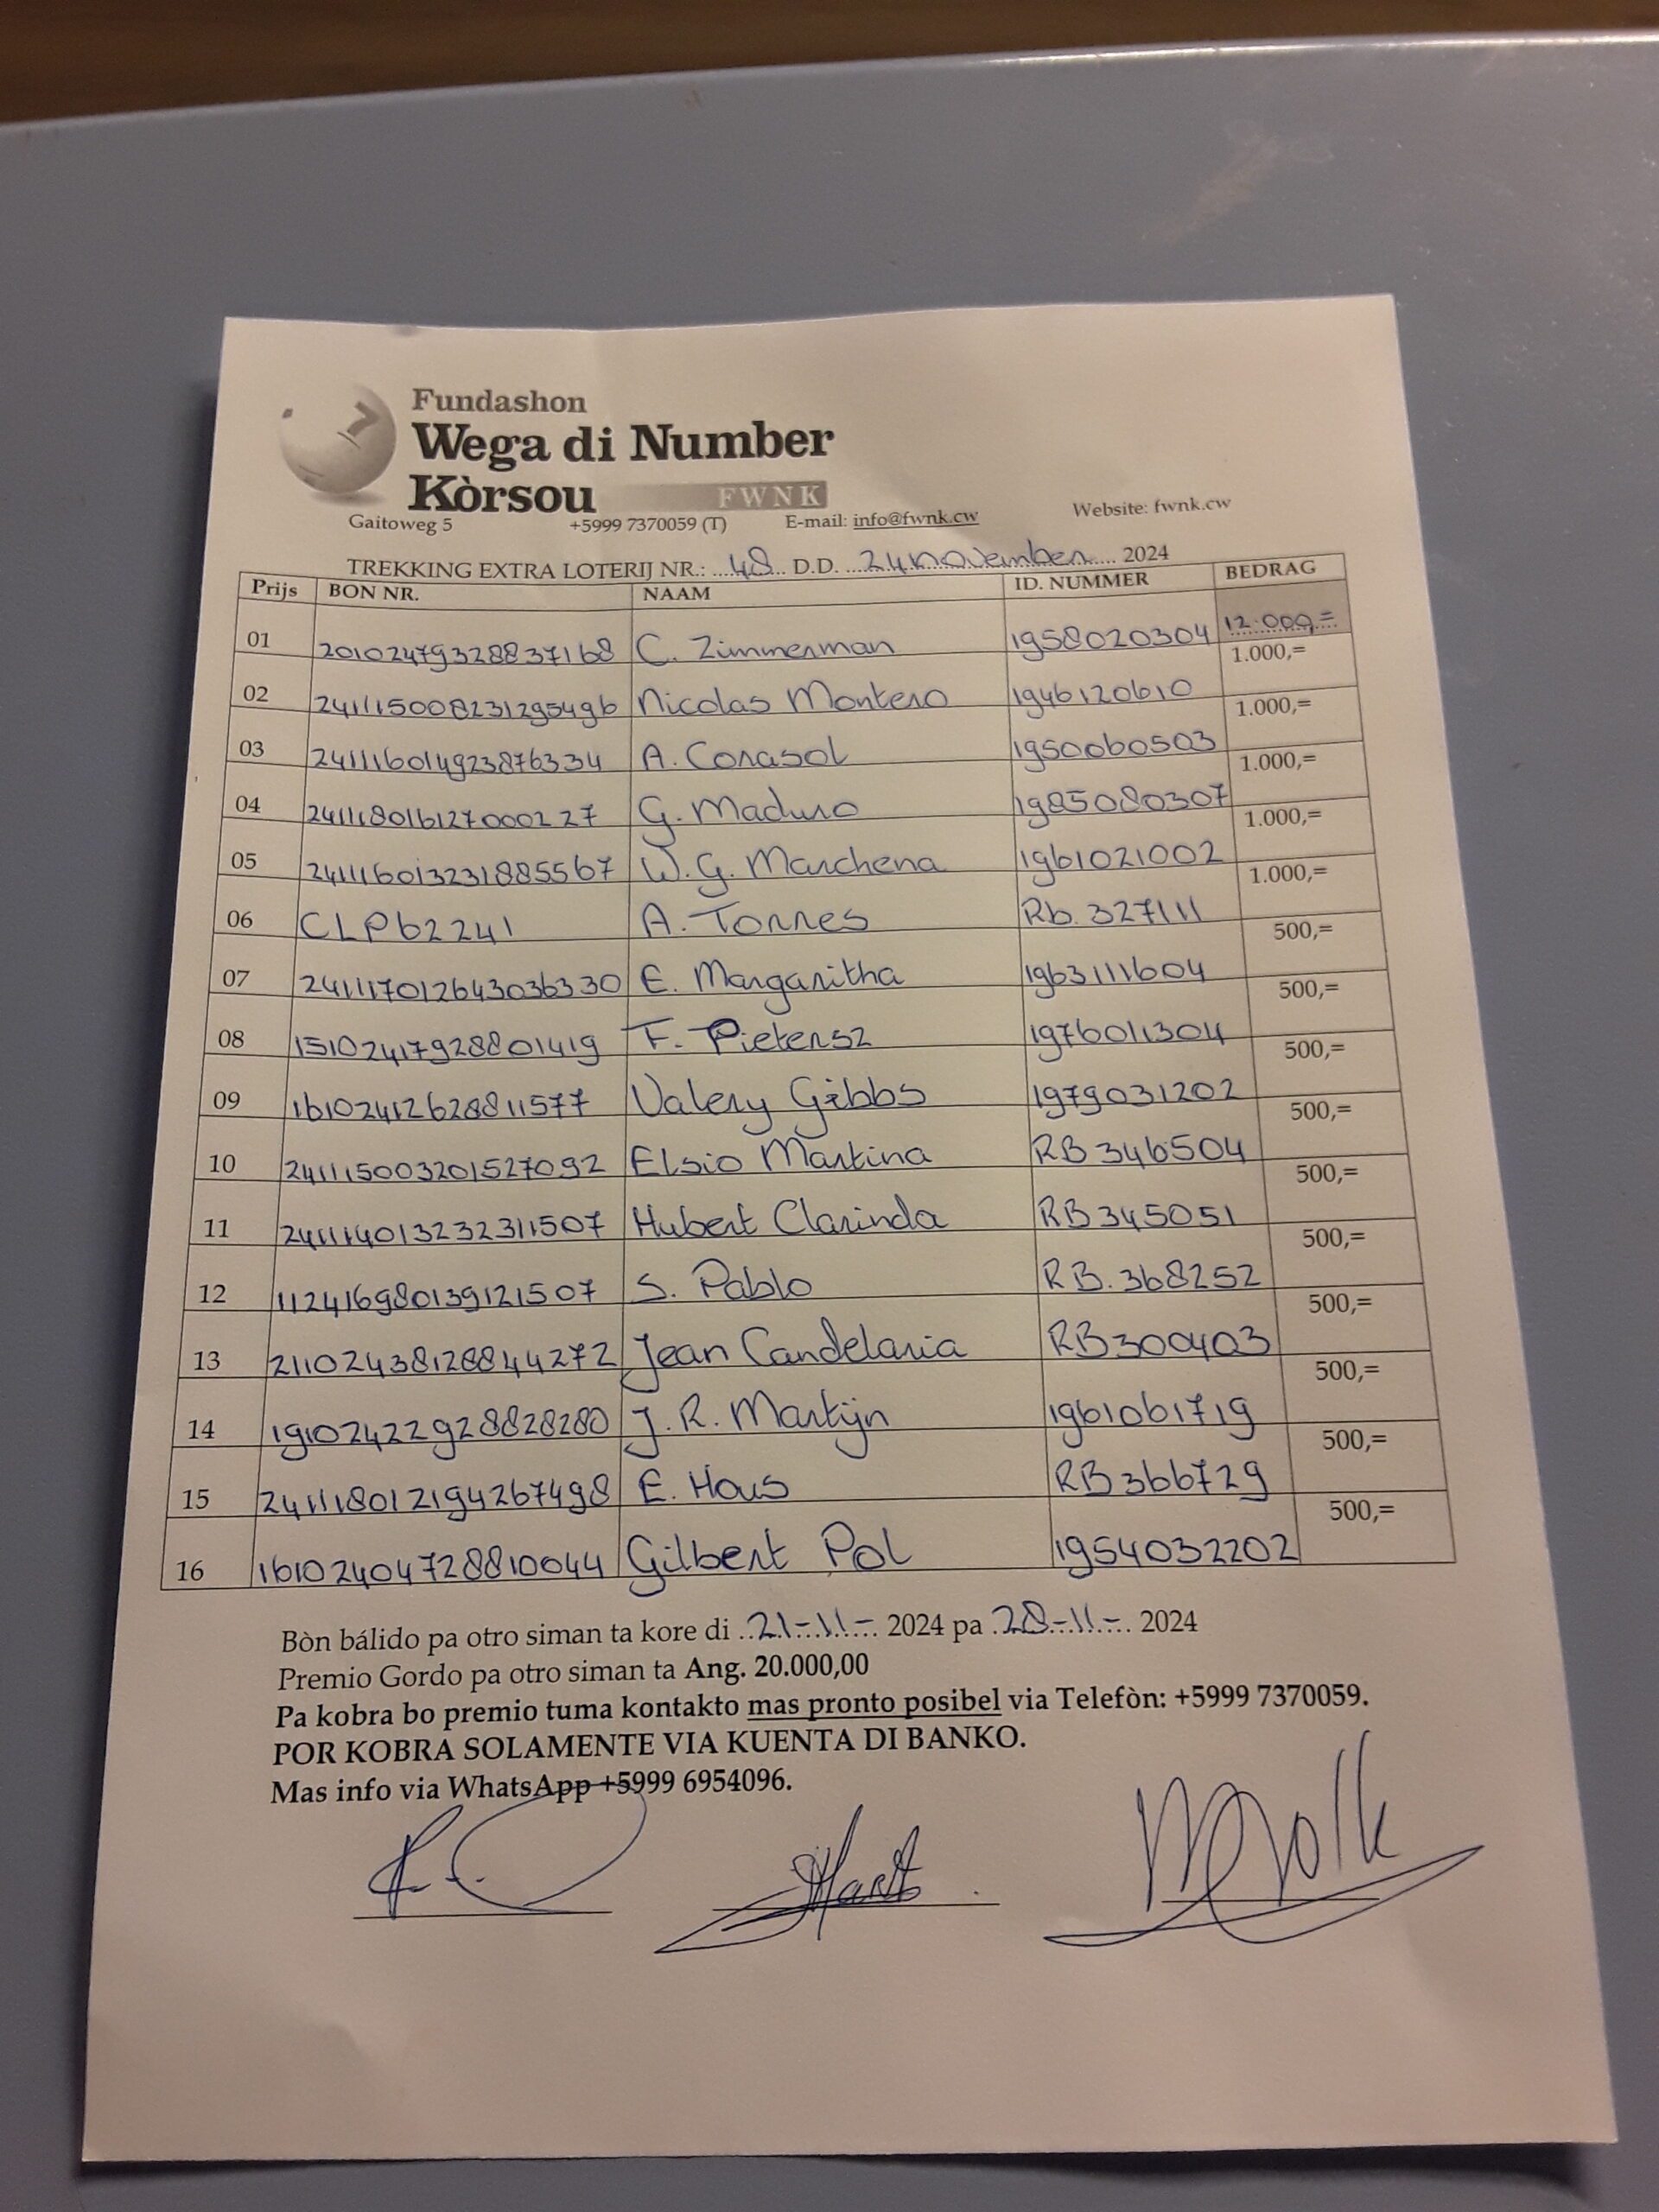 Fundashon
Wega di Number
Kòrsou FWNK
Gaitoweg 5 +5999 7370059 (T) E-mail: info@fwnk.cw Website: fwnk.cw
TREKKING EXTRA LOTERIJ NR.: 48 D.D. 24 november 2024
Prijs BON NR. NAAM ID. NUMMER BEDRAG
01 20102479328837168 C. Zimmerman 1958020304 12.000,=
02 241115008231295496 Nicolas Montero 1946120610 1.000,=
03 241116014923876334 A. Corasol 1950060503 1.000,=
04 241118016127000227 G. Maduro 1985080307 1.000,=
05 241116013231885567 W.G. Marchena 1961021002 1.000,=
06 CLP62241 A. Torres Rb. 327111 1.000,=
07 241117012643036330 E. Margaritha 1963111604 500,=
08 15102417928801419 F. Pietersz 1976011304 500,=
09 16102412628811577 Valery Gibbs 1979031202 500,=
10 241115003201527092 Elsio Martina RB 346504 500,=
11 241114013232311507 Hubert Clarinda RB 345051 500,=
12 112416980139121507 S. Pablo RB. 368252 500,=
13 21102438128844272 Jean Candelaria RB 300403 500,=
14 19102422928828280 J.R. Martijn 1961061719 500,=
15 241118012194267498 E. Hous RB 366729 500,=
16 16102404728810044 Gilbert Pol 1954032202 500,=
Bòn bálido pa otro siman ta kore di 21-11- 2024 pa 28-11- 2024
Premio Gordo pa otro siman ta Ang. 20.000,00
Pa kobra bo premio tuma kontakto mas pronto posibel via Telefòn: +5999 7370059.
POR KOBRA SOLAMENTE VIA KUENTA DI BANKO.
Mas info via WhatsApp +5999 6954096.